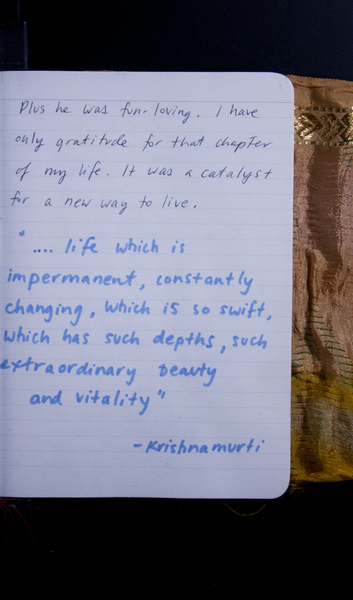 Plus he was fun-loving. I have
only gratitude for that chapter
of my life. It was a catalyst
for a new way to live.
".... life which is
impermanent, constantly
changing, which is so swift,
which has such depths, such
extraordinary beauty
and vitality"
- Krishnamurti